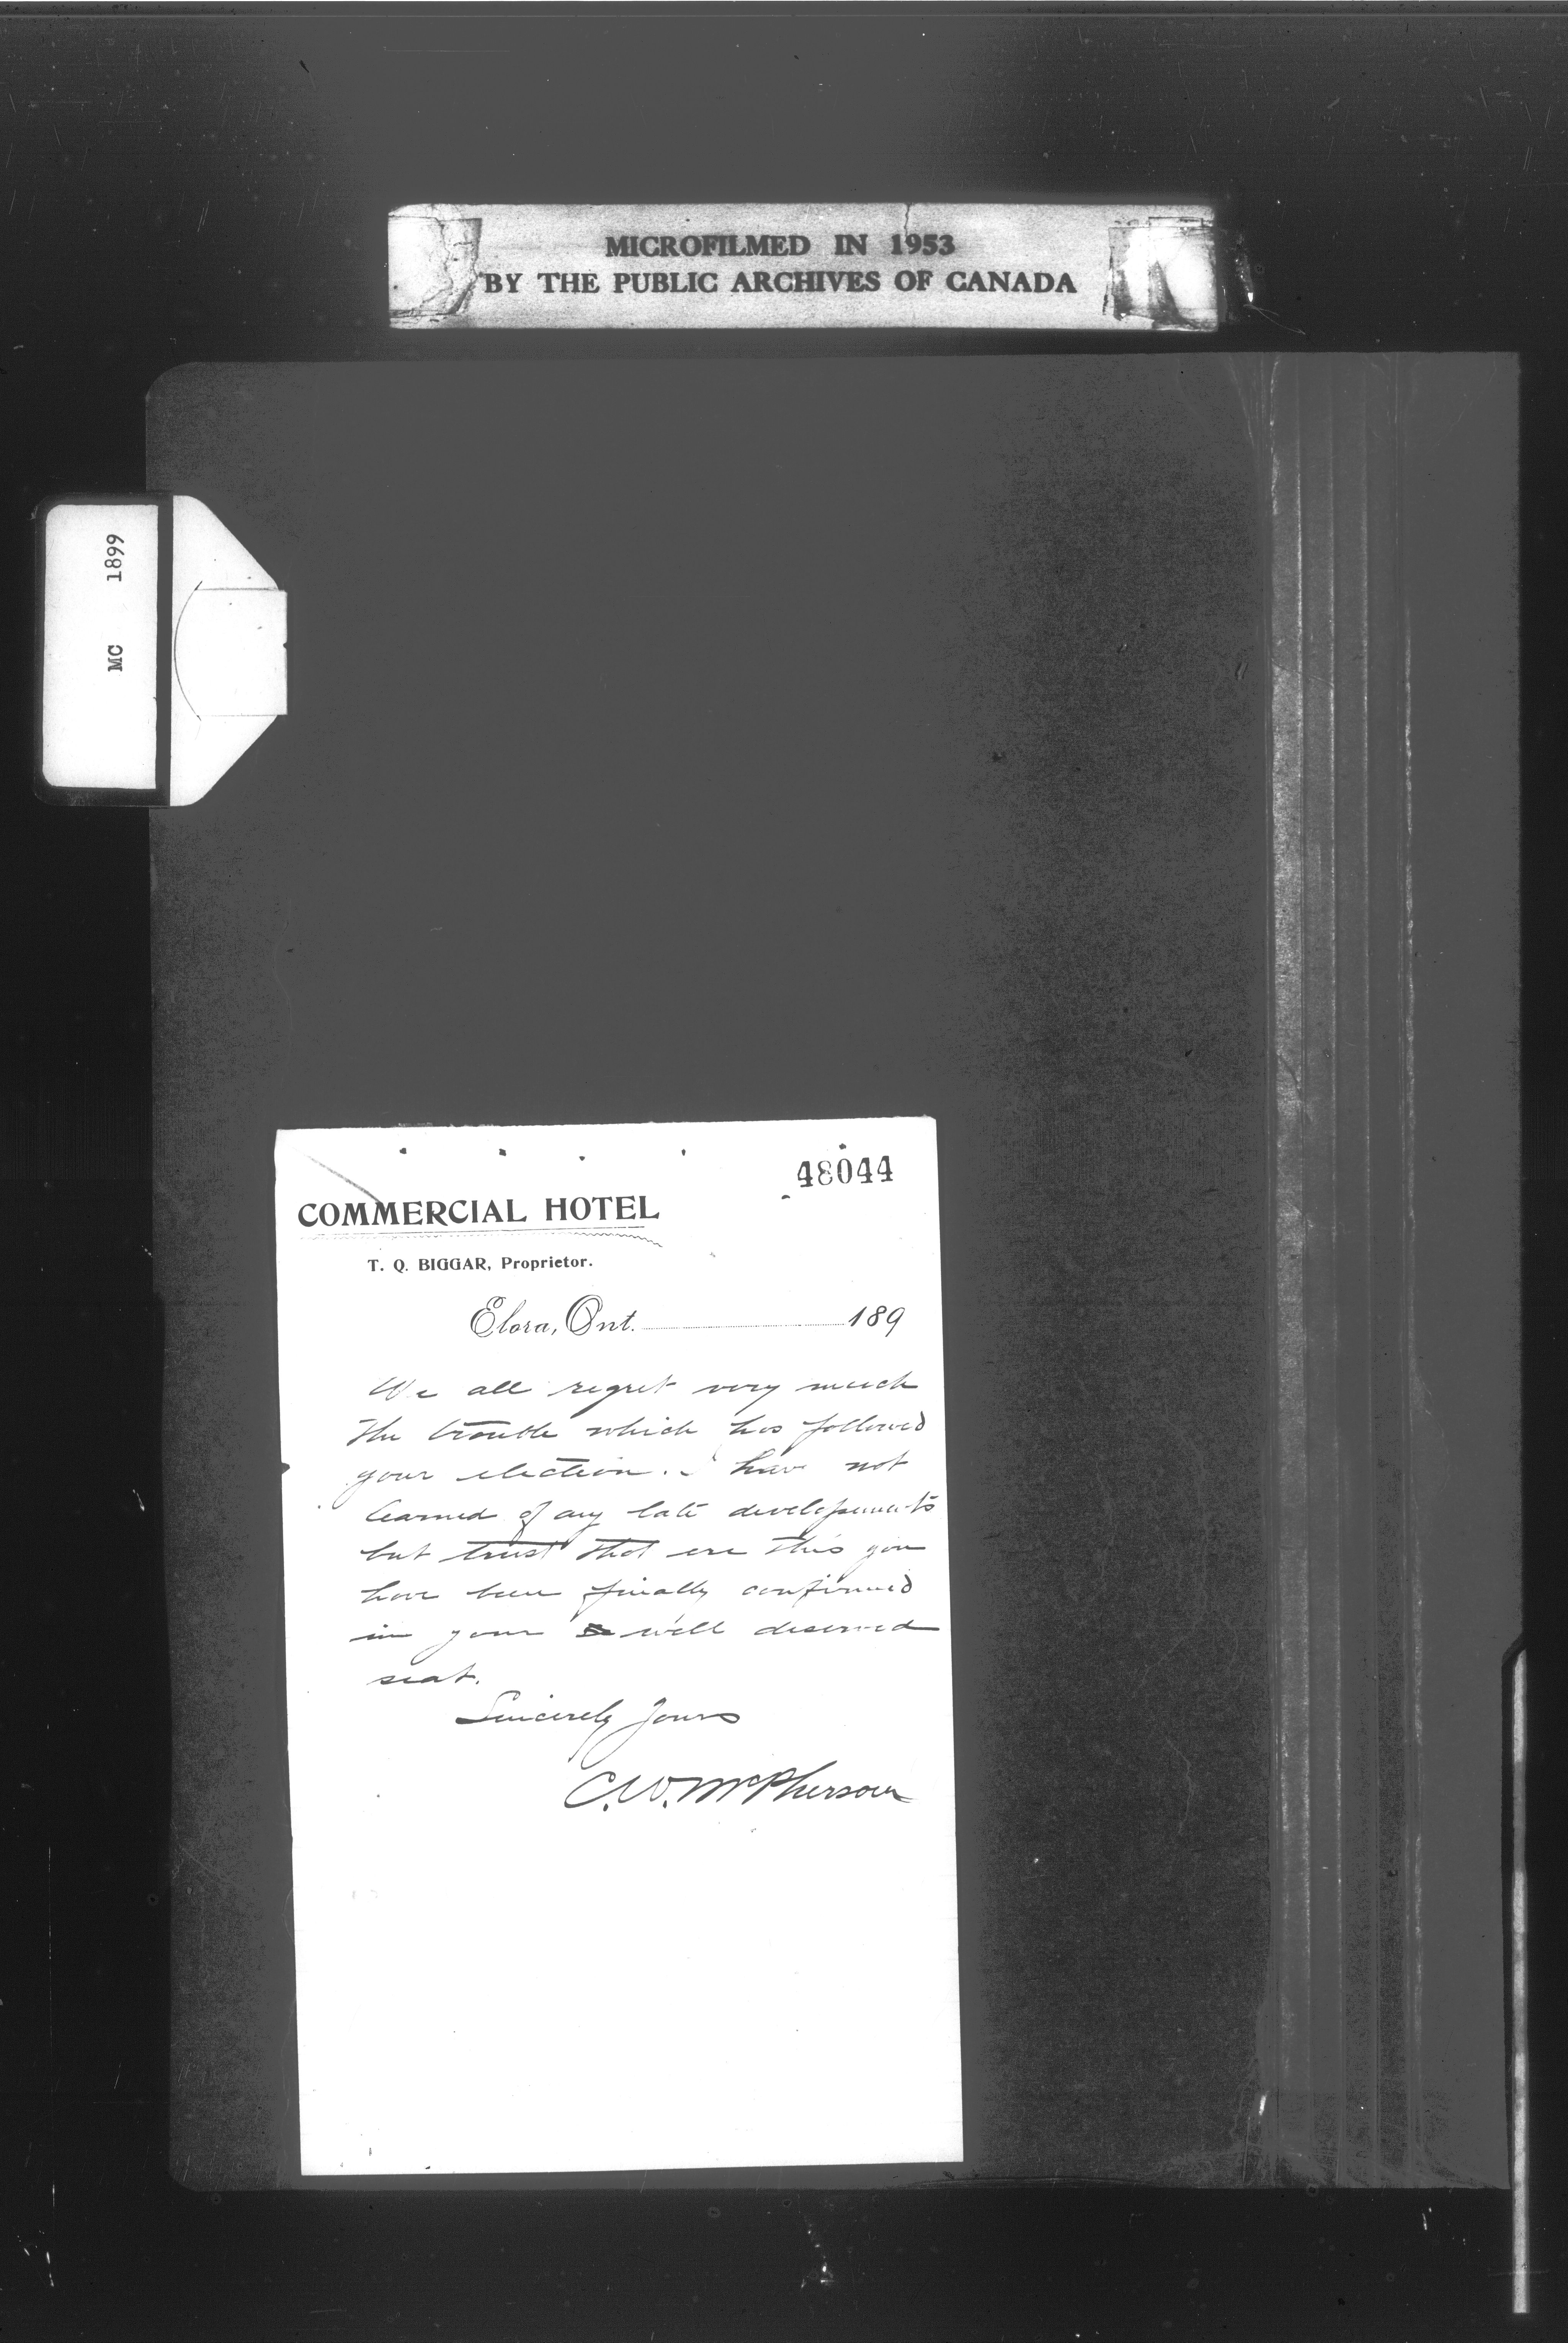 MICROFILMED IN 1953
BY THE PUBLIC ARCHIVES OF CANADA
MC 1899
48044
COMMERCIAL HOTEL
T. Q. BIGGAR, Proprietor.
Elora, Ont. 189
We all regret very much
the trouble which has followed
your election. I have not
learned of any late developements
but trust that ere this you
have been finally confirmed
in your well deserved
seat.
Sincerely Yours
C. W. McPherson